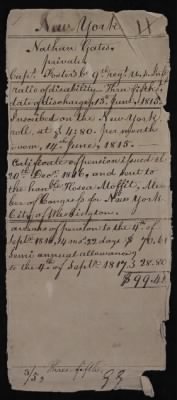 New York
Nathan Gates,
private
Capt. Foster's 9th Regt U.S. Inf.
ratio of disability Three fifths
date of discharge, 15th June, 1815.
Inscribed on the New York
roll at $4:80. per month
from, 14th June, 1815.
Certificate of pension issued at
20th Decr. 1816, and sent to
the honble Hosea Moffit, Mem
ber of Congress for New York
City of Washington.
arrears of pension to the 4th of
Sept. 1816. 14 mos. 22 days $ 70.68
Semi annual allowance
to the 4th of Septr. 1817 $ 28.80
$99.48
Three fifths